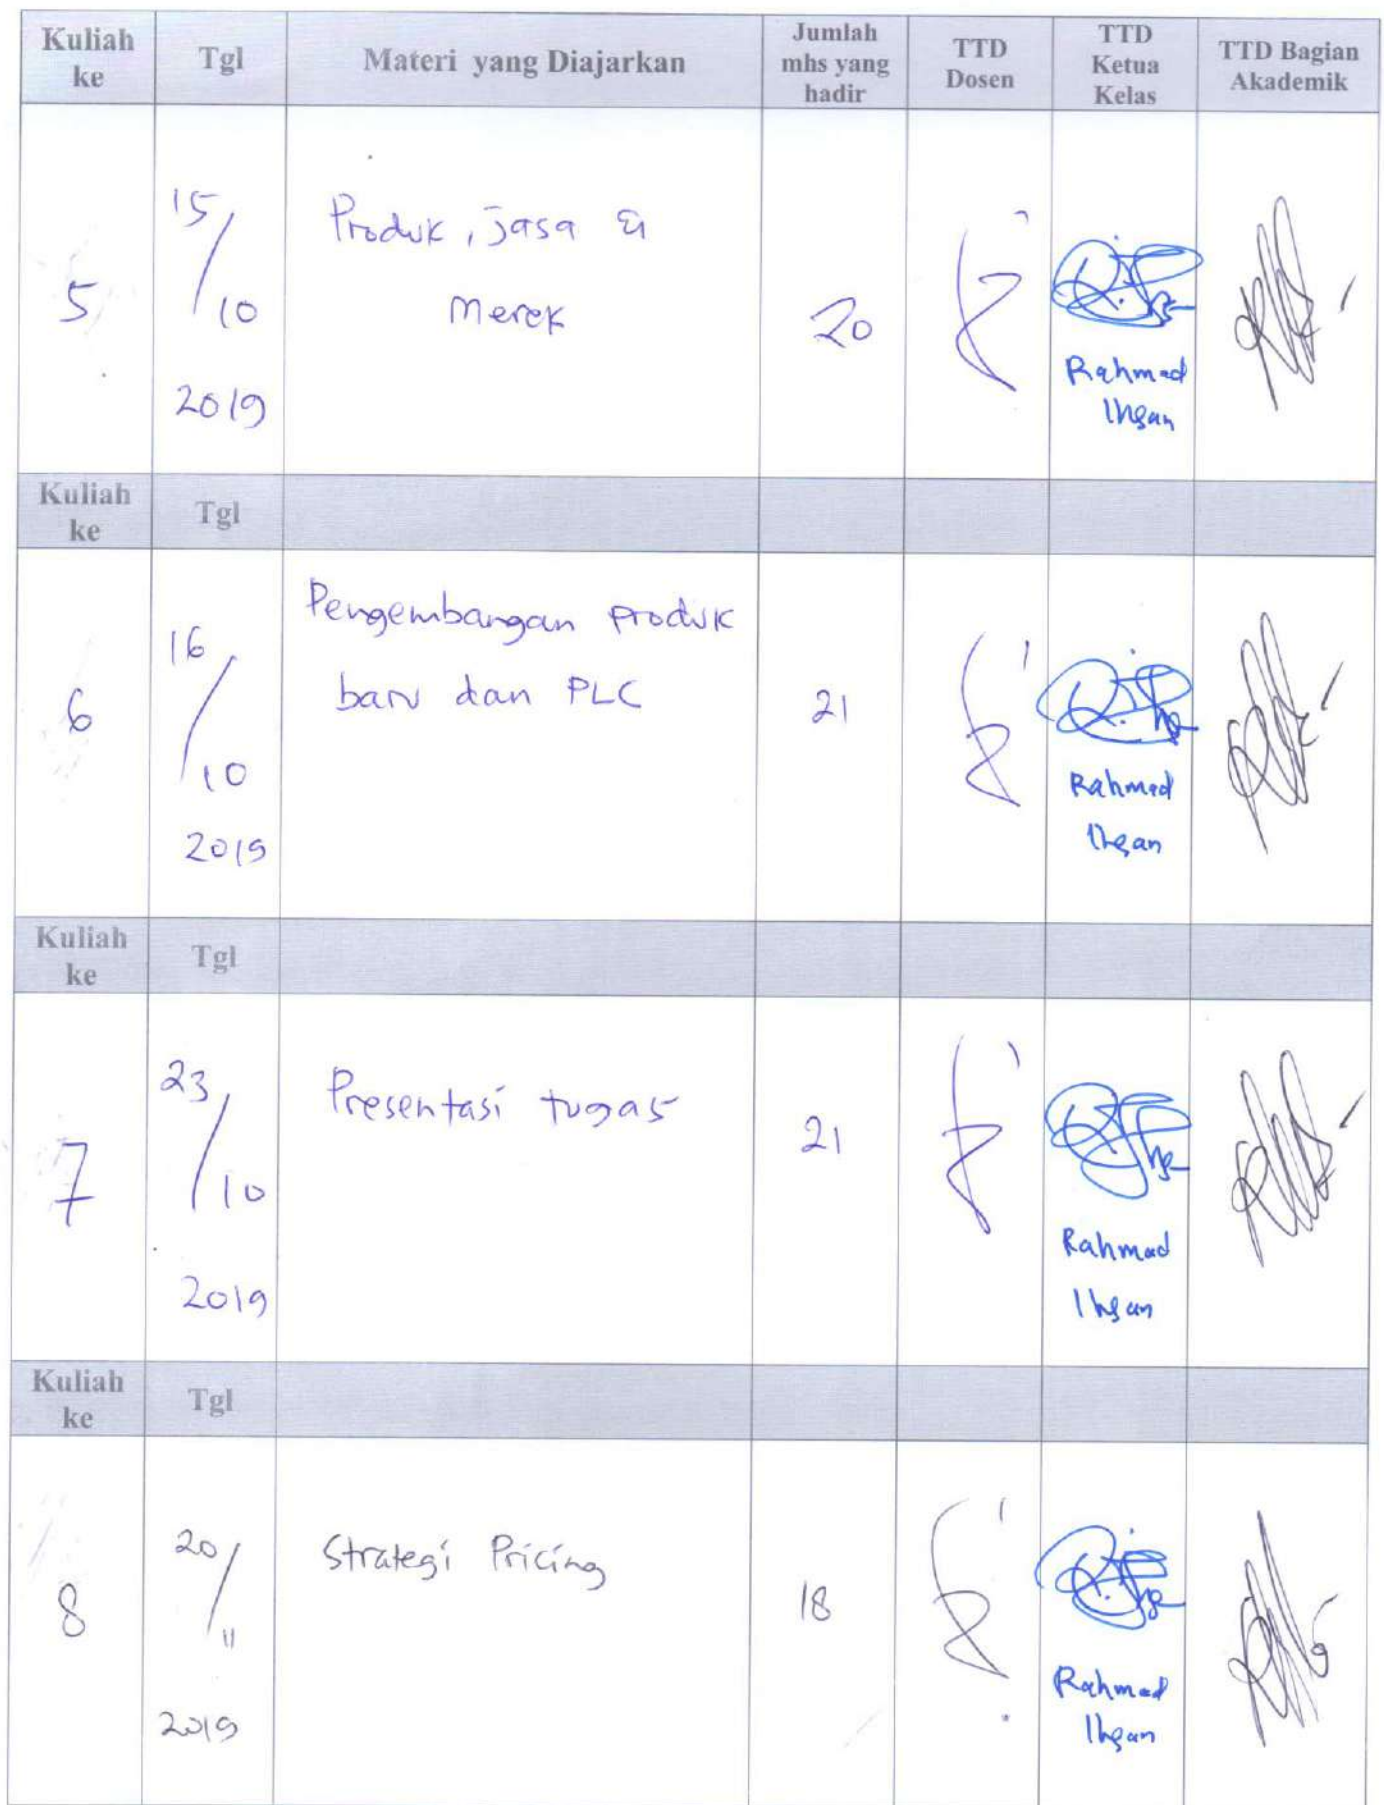 Kuliah ke Tgl Materi yang Diajarkan Jumlah mhs yang hadir TTD Dosen TTD Ketua Kelas TTD Bagian Akademik
15/10
Produk, jasa &
5
Merek
20
2019
Rahmad
Ihsan
Kuliah ke Tgl
16/10
Pengembangan produk
6
baru dan PLC
21
2019
Rahmad
Ihsan
Kuliah ke Tgl
23/10
Presentasi tugas
7
21
2019
Rahmad
Ihsan
Kuliah ke Tgl
20/11
Strategi Pricing
8
18
2019
Rahmad
Ihsan